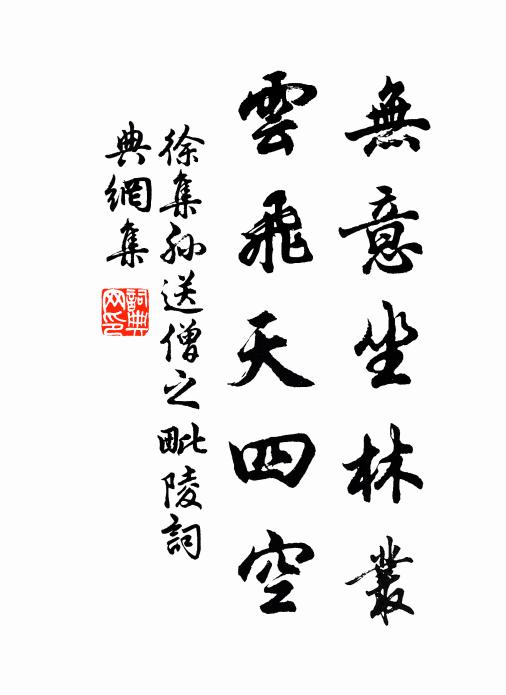 無意坐林叢
雲飛天四空
徐集孙送僧之毗陵詞
典網集
詞典網印